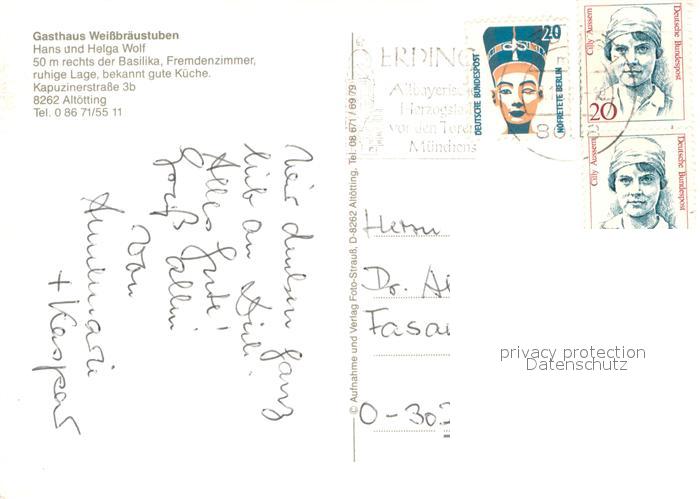 Gasthaus Weißbräustuben
Hans und Helga Wolf
50 m rechts der Basilika, Fremdenzimmer,
ruhige Lage, bekannt gute Küche.
Kapuzinerstraße 3b
8262 Altötting
Tel. 0 86 71/55 11
Wir denken ganz
lieb an Dich!
Alles Gute!
Groß
Von
Annemarie
+ Kaspar
© Aufnahme und Verlag Foto-Strauß, D-8262 Altötting, Tel. 08 671 / 69 79
ERDING
Altbayerische
Herzogstadt
vor den Toren
Münchens
20
DEUTSCHE BUNDESPOST
NOFRETETE BERLIN
Cilly Aussem
Deutsche Bundespost
20
Cilly Aussem
Deutsche Bundespost
Herrn
Dr.
Fasan
privacy protection
Datenschutz